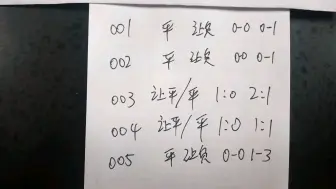 001 平 让负 0-0 0-1
002 平 让负 00 0-1
003 让平/平 1:0 2:1
004 让平/平 1:0 1:1
005 平 让负 0-0 1-3